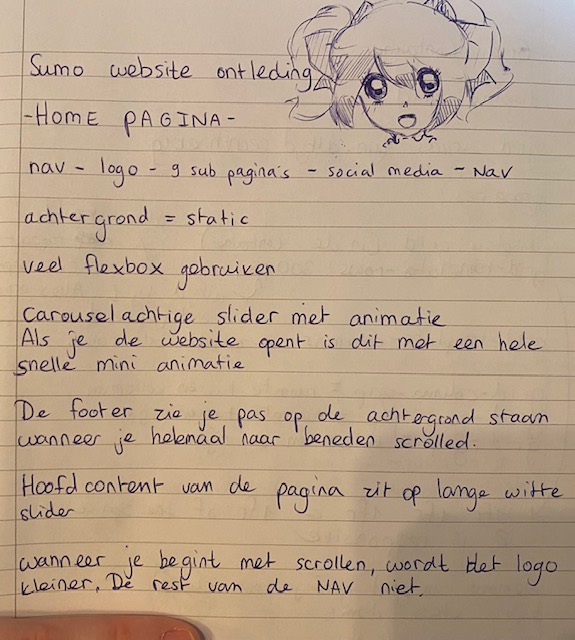 Sumo website ontleding
-HOME PAGINA-
nav - logo - 9 sub pagina's - social media - NAV
achtergrond = static
veel flexbox gebruiken
Carouselachtige slider met animatie
Als je de website opent is dit met een hele
snelle mini animatie
De footer zie je pas op de achtergrond staan
wanneer je helemaal naar beneden scrolled.
Hoofdcontent van de pagina zit op lange witte
slider
wanneer je begint met scrollen, wordt het logo
kleiner. De rest van de NAV niet.